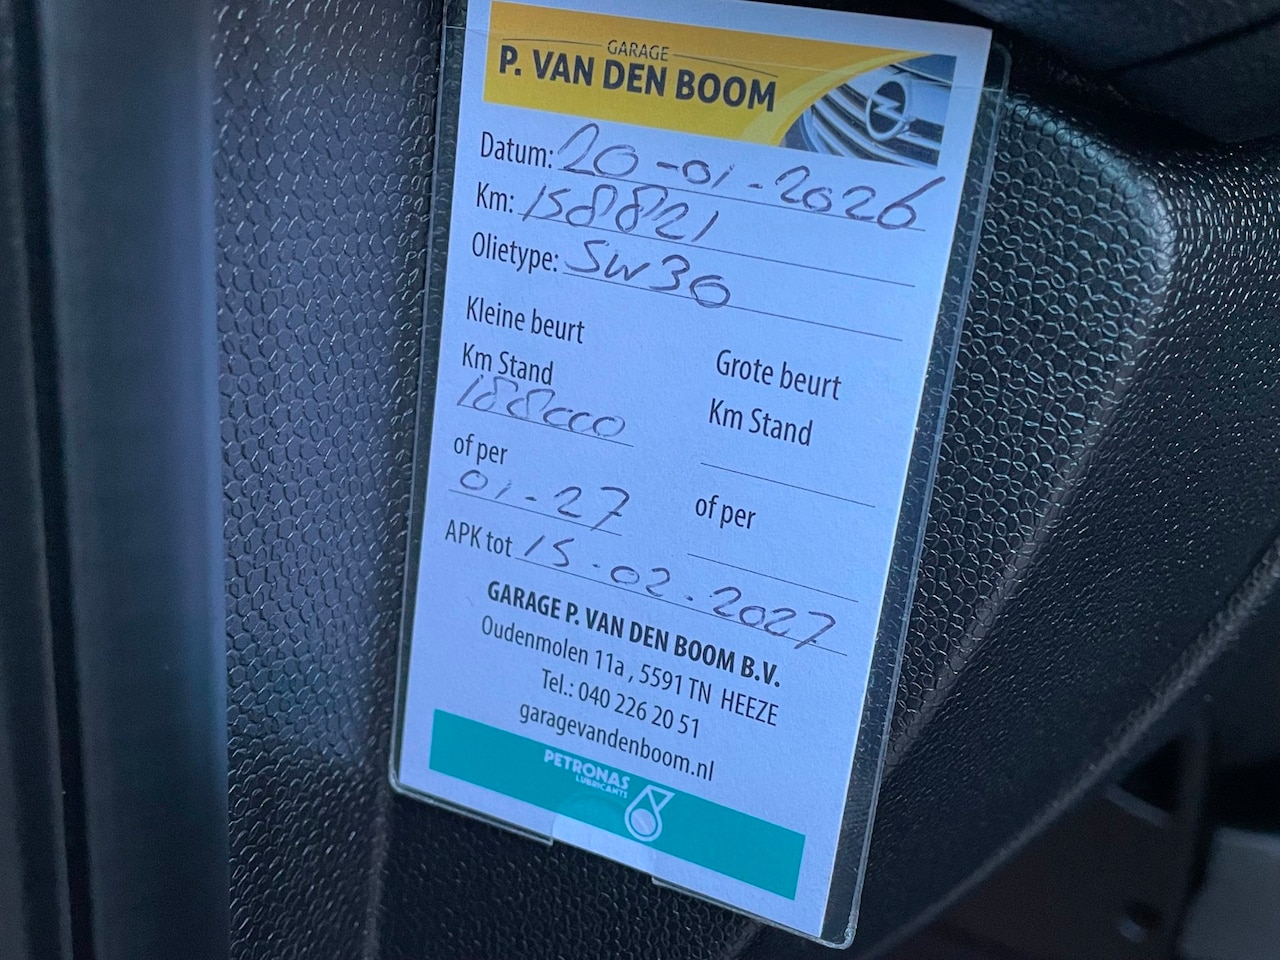 GARAGE
P. VAN DEN BOOM
Datum: 20-01-2026
Km: 158821
Olietype: 5W30
Kleine beurt
Km Stand
188000
of per
01-27
Grote beurt
Km Stand
of per
APK tot 15-02-2027
GARAGE P. VAN DEN BOOM B.V.
Oudenmolen 11a , 5591 TN HEEZE
Tel.: 040 226 20 51
garagevandenboom.nl
PETRONAS
LUBRICANTS